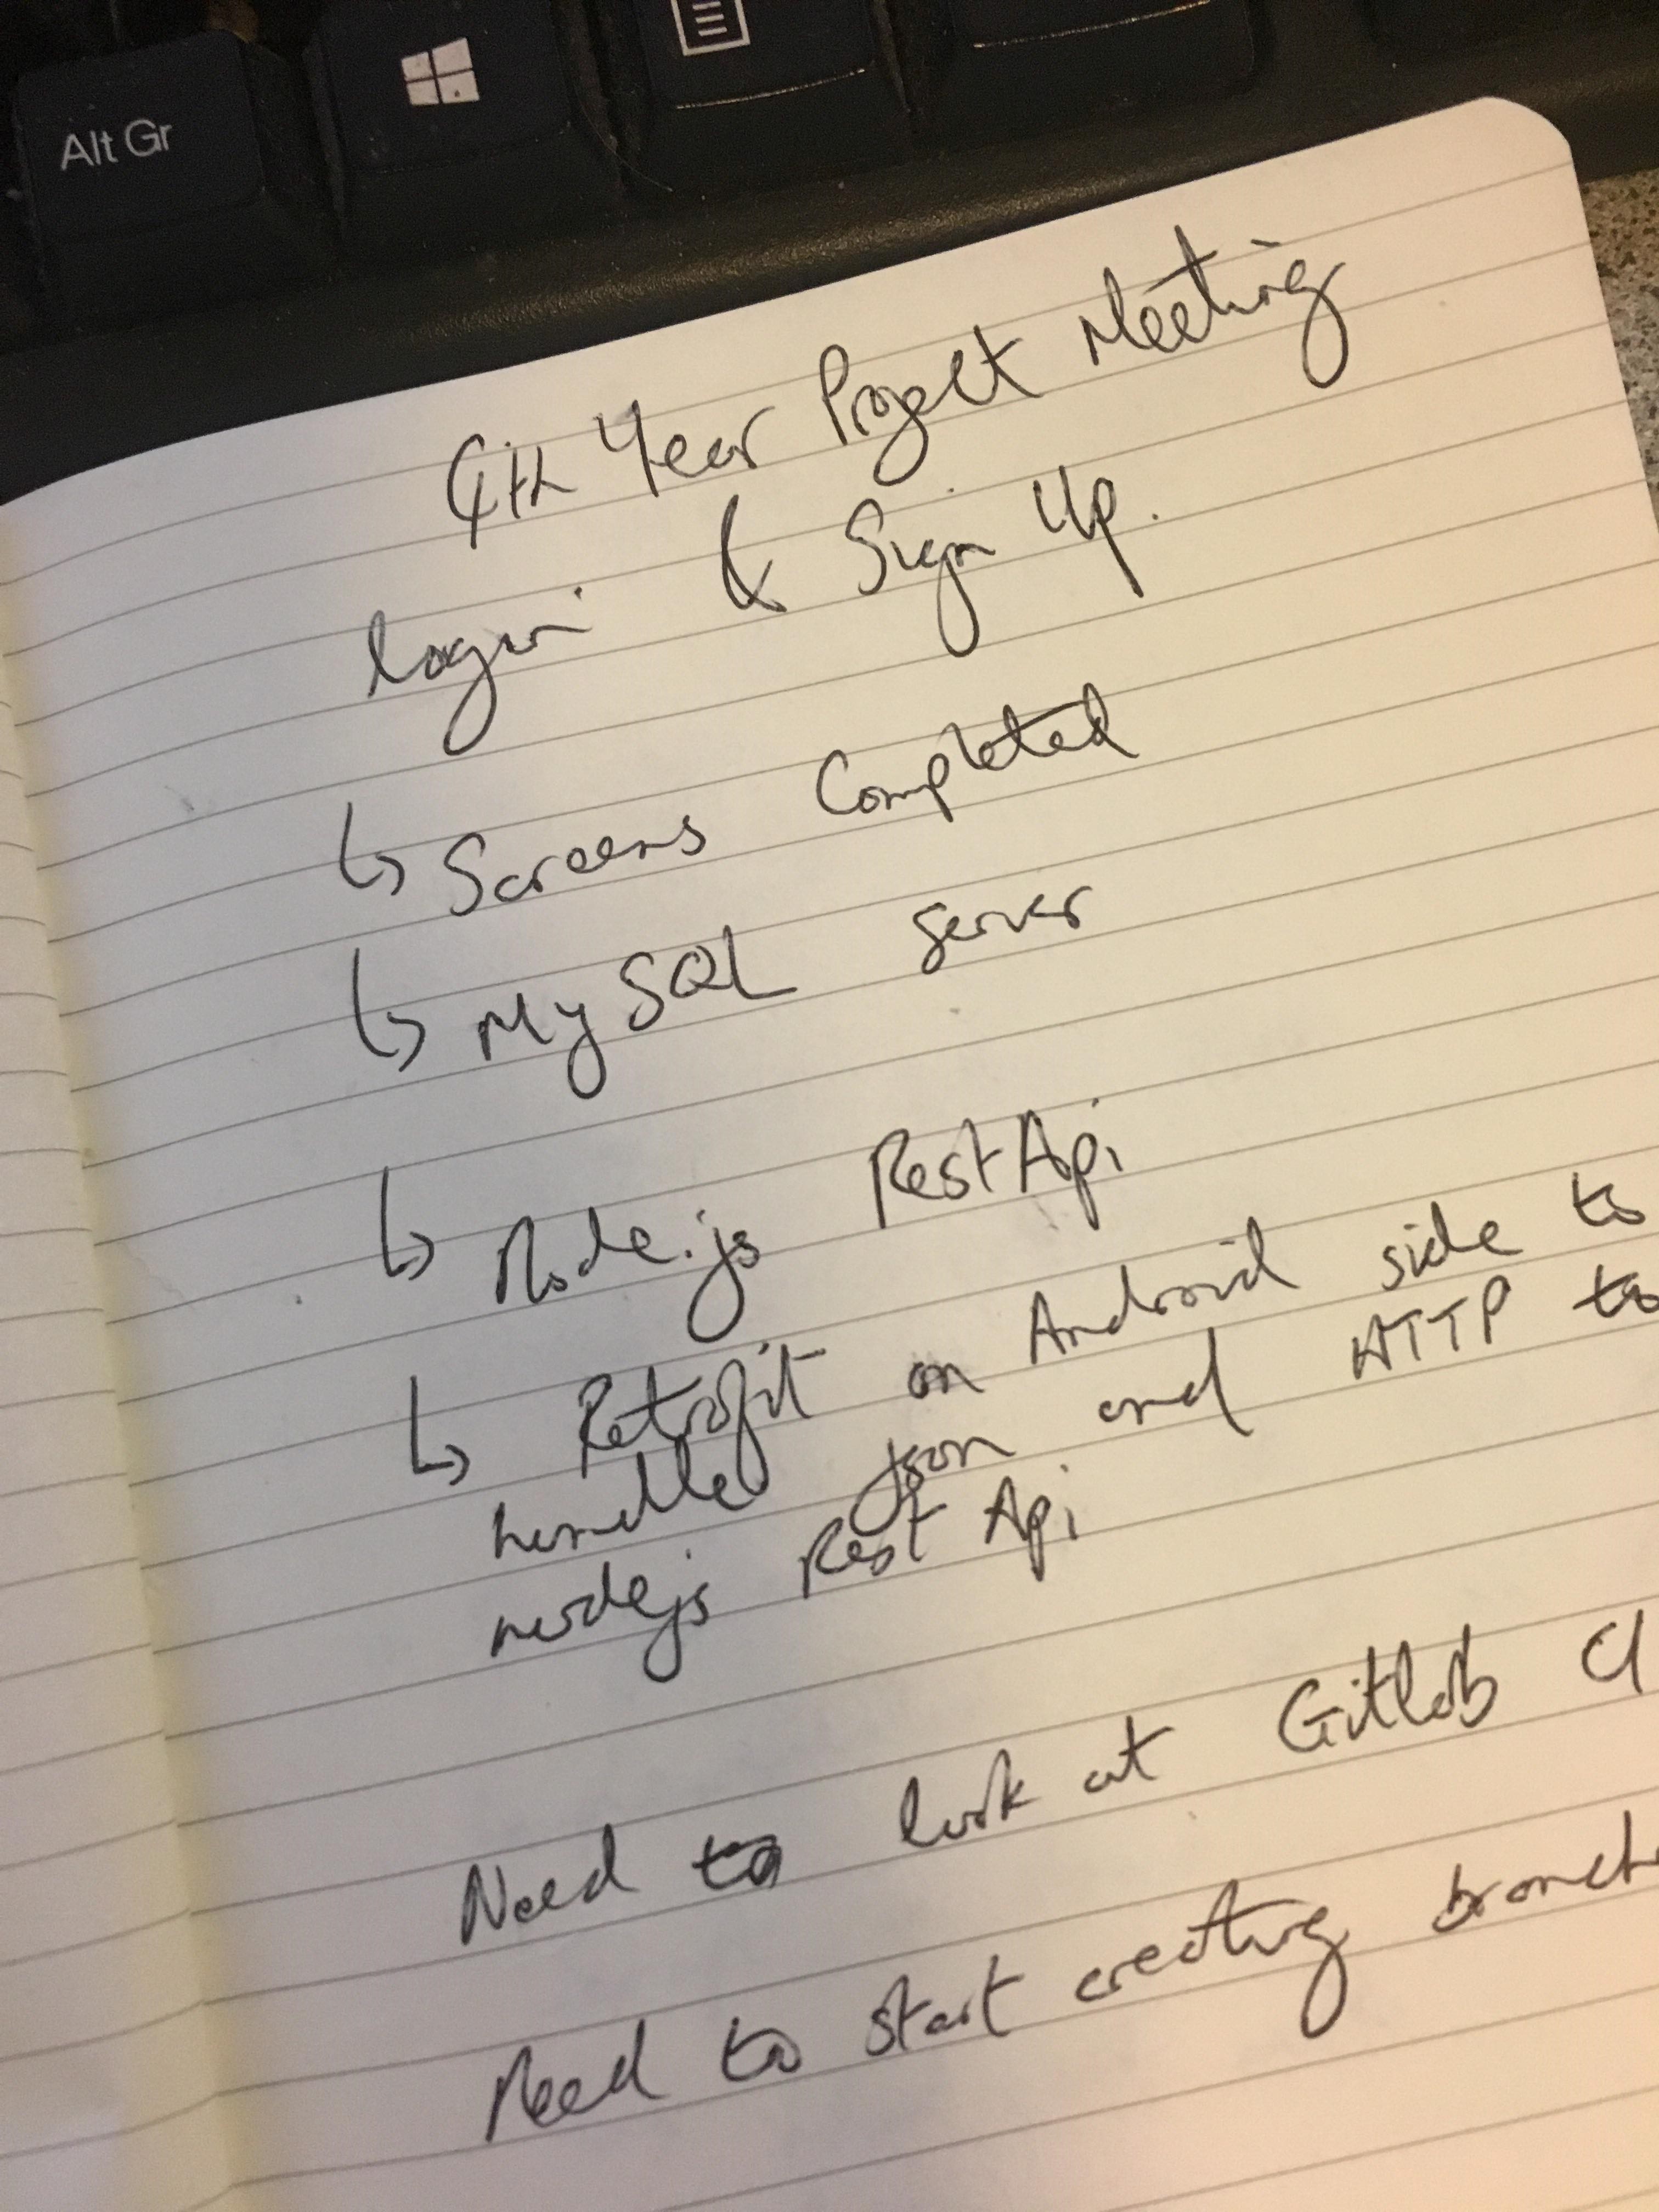 Alt Gr
4th Year Project Meeting
login & Sign Up.
↳ Screens Completed
↳ MySQL server
↳ Node.js Rest Api
↳ Retrofit on Android side to
handle json and HTTP to
nodejs Rest Api
Need to look at Gitlab CI
Need to start creating branche